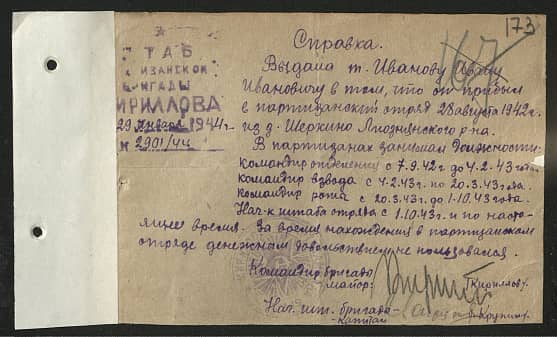 173
167
ШТАБ
ПАРТИЗАНСКОЙ
БРИГАДЫ
КИРИЛЛОВА
29 января 1944 г.
№ 2901/44
Справка.
Выдана т. Иванову Ивану
Ивановичу в том, что он прибыл
в партизанский отряд 28 августа 1942 г.
из д. Шеркино Лиозненского р-на.
В партизанах занимал должности:
командир отделения с 7.9.42 г до 4.2.43 года
командир взвода с 4.2.43 г. по 20.3.43 года.
командир роты с 20.3.43 г до 1-10.43 года.
Нач-к штаба отряда с 1.10.43 г. и по насто-
ящее время. За время нахождения в партизанском
отряде денежным довольствием не пользовался.
Командир бригады
майор: /Кириллов/.
Нач. шт. бригады
капитан